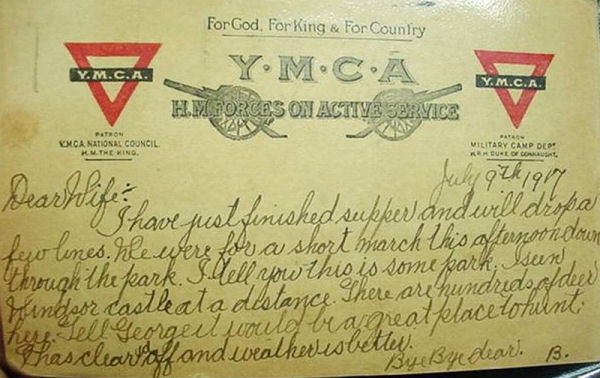 For God, For King & For Country
Y.M.C.A.
Y·M·C·A
Y.M.C.A.
H.M. FORCES ON ACTIVE SERVICE
PATRON
Y.M.C.A. NATIONAL COUNCIL.
H.M. THE KING.
PATRON
MILITARY CAMP DEPT
H.R.H. DUKE OF CONNAUGHT.
July 9th 1917
Dear Wife:-
I have just finished supper and will drop a
few lines. We were for a short march this afternoon down
through the park. I tell you this is some park. I seen
Windsor castle at a distance. There are hundreds of deer
here. Tell George it would be a great place to hunt.
It has clear'd off and weather is better.
Bye Bye dear. B.